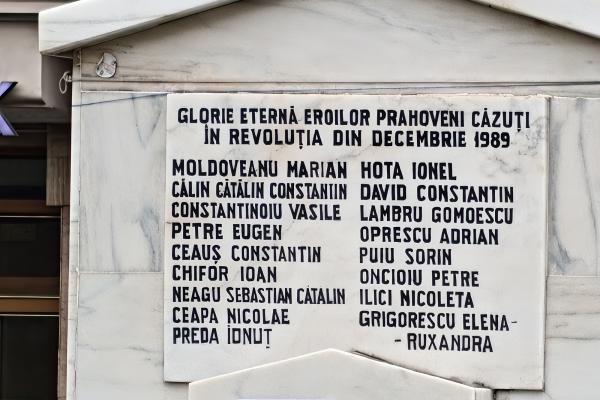 GLORIE ETERNĂ EROILOR PRAHOVENI CĂZUȚI
ÎN REVOLUȚIA DIN DECEMBRIE 1989
MOLDOVEANU MARIAN
CĂLIN CĂTĂLIN CONSTANTIN
CONSTANTINOIU VASILE
PETRE EUGEN
CEAUȘ CONSTANTIN
CHIFOR IOAN
NEAGU SEBASTIAN CĂTĂLIN
CEAPA NICOLAE
PREDA IONUȚ
HOTA IONEL
DAVID CONSTANTIN
LAMBRU GOMOESCU
OPRESCU ADRIAN
PUIU SORIN
ONCIOIU PETRE
ILICI NICOLETA
GRIGORESCU ELENA-
-RUXANDRA